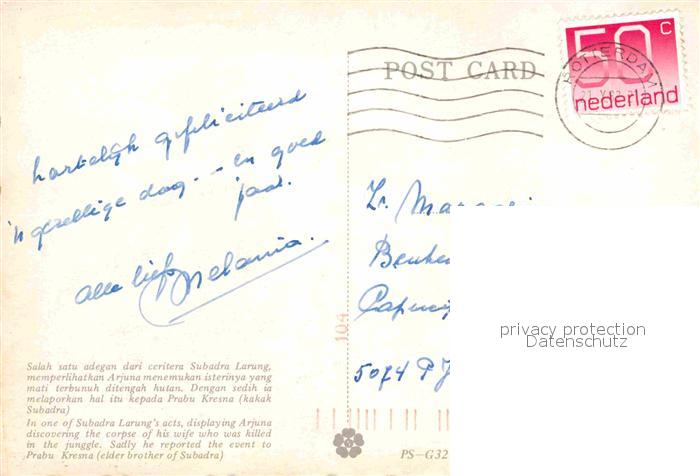 POST CARD
50 c
nederland
ROTTERDAM
hartelijk gefeliciteerd
'n gezellige dag - en goed
jaar.
alle liefs
Melania.
Zr.
5074 PJ
104
privacy protection
Datenschutz
Salah satu adegan dari ceritera Subadra Larung,
memperlihatkan Arjuna menemukan isterinya yang
mati terbunuh ditengah hutan. Dengan sedih ia
melaporkan hal itu kepada Prabu Kresna (kakak
Subadra)
In one of Subadra Larung's acts, displaying Arjuna
discovering the corpse of his wife who was killed
in the junggle. Sadly he reported the event to
Prabu Kresna (elder brother of Subadra)
PS-G32